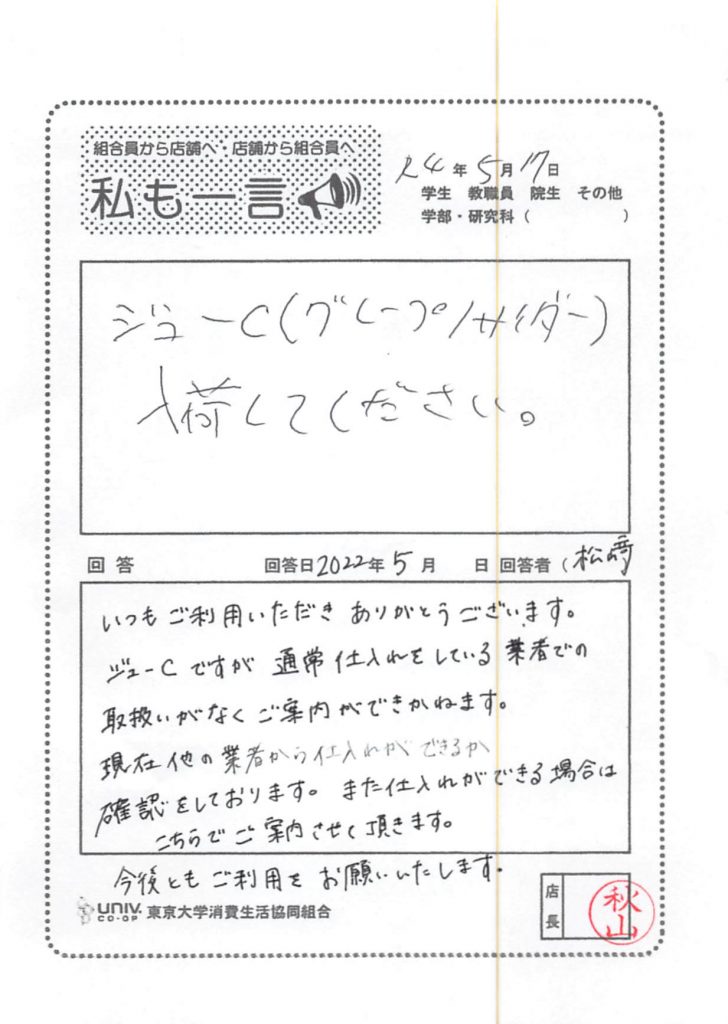 組合員から店舗へ・店舗から組合員へ
私も一言
R4年5月17日
学生 教職員 院生 その他
学部・研究科( )
ジューC(グレープ/サイダー)
入荷してください。
回答 回答日2022年5月 日 回答者(松﨑
いつもご利用いただきありがとうございます。
ジューCですが 通常仕入れをしている業者での
取扱いがなくご案内ができかねます。
現在他の業者から仕入れができるか
確認をしております。また仕入れができる場合は
こちらでご案内させて頂きます。
今後ともご利用をお願いいたします。
UNIV. CO-OP 東京大学消費生活協同組合
店長 秋山